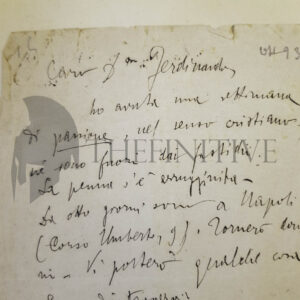 15
Caro Don Ferdinando,
ho avuta una settimana
di passione, nel senso cristiano.
sono fuori dai fastidi.
La penna s'è arrugginita -
Da otto giorni sono a Napoli
(Corso Umberto, 9). Tornerò
ni - Vi porterò qualche cosa
THEFINITIVE